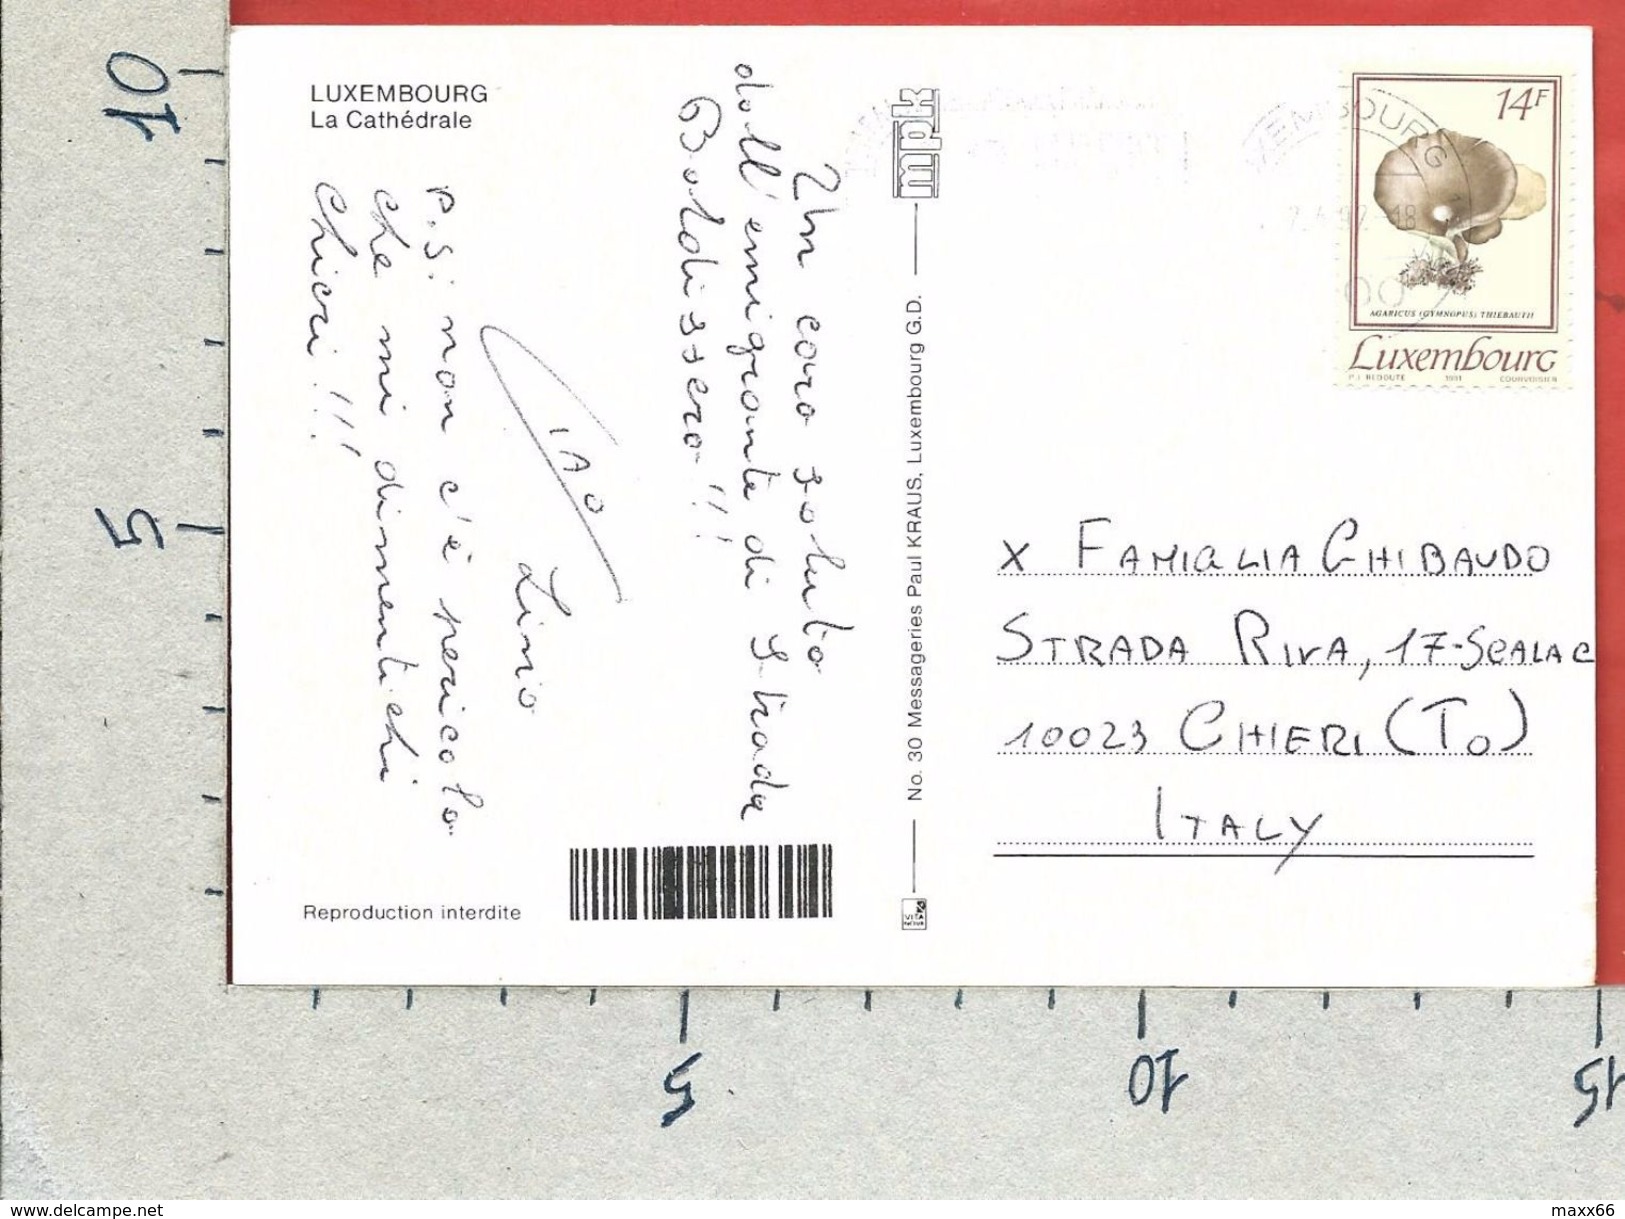 LUXEMBOURG
La Cathédrale
Un caro saluto
dall'emigrante di Strada
Baldissero!!!
CIAO
Lino
P.S. non c'è pericolo
che mi dimentichi
Chieri!!!
Reproduction interdite
mpk
No. 30 Messageries Paul KRAUS, Luxembourg G.D.
VITA NOVA
14F
AGARICUS (GYMNOPUS) THIEBAUTII
Luxembourg
P.J. REDOUTÉ 1991 COURVOISIER
X FAMIGLIA GHIBAUDO
STRADA RIVA, 17-SCALA C
10023 CHIERI (TO)
ITALY
10
5
5
10
15
www.delcampe.net
maxx66